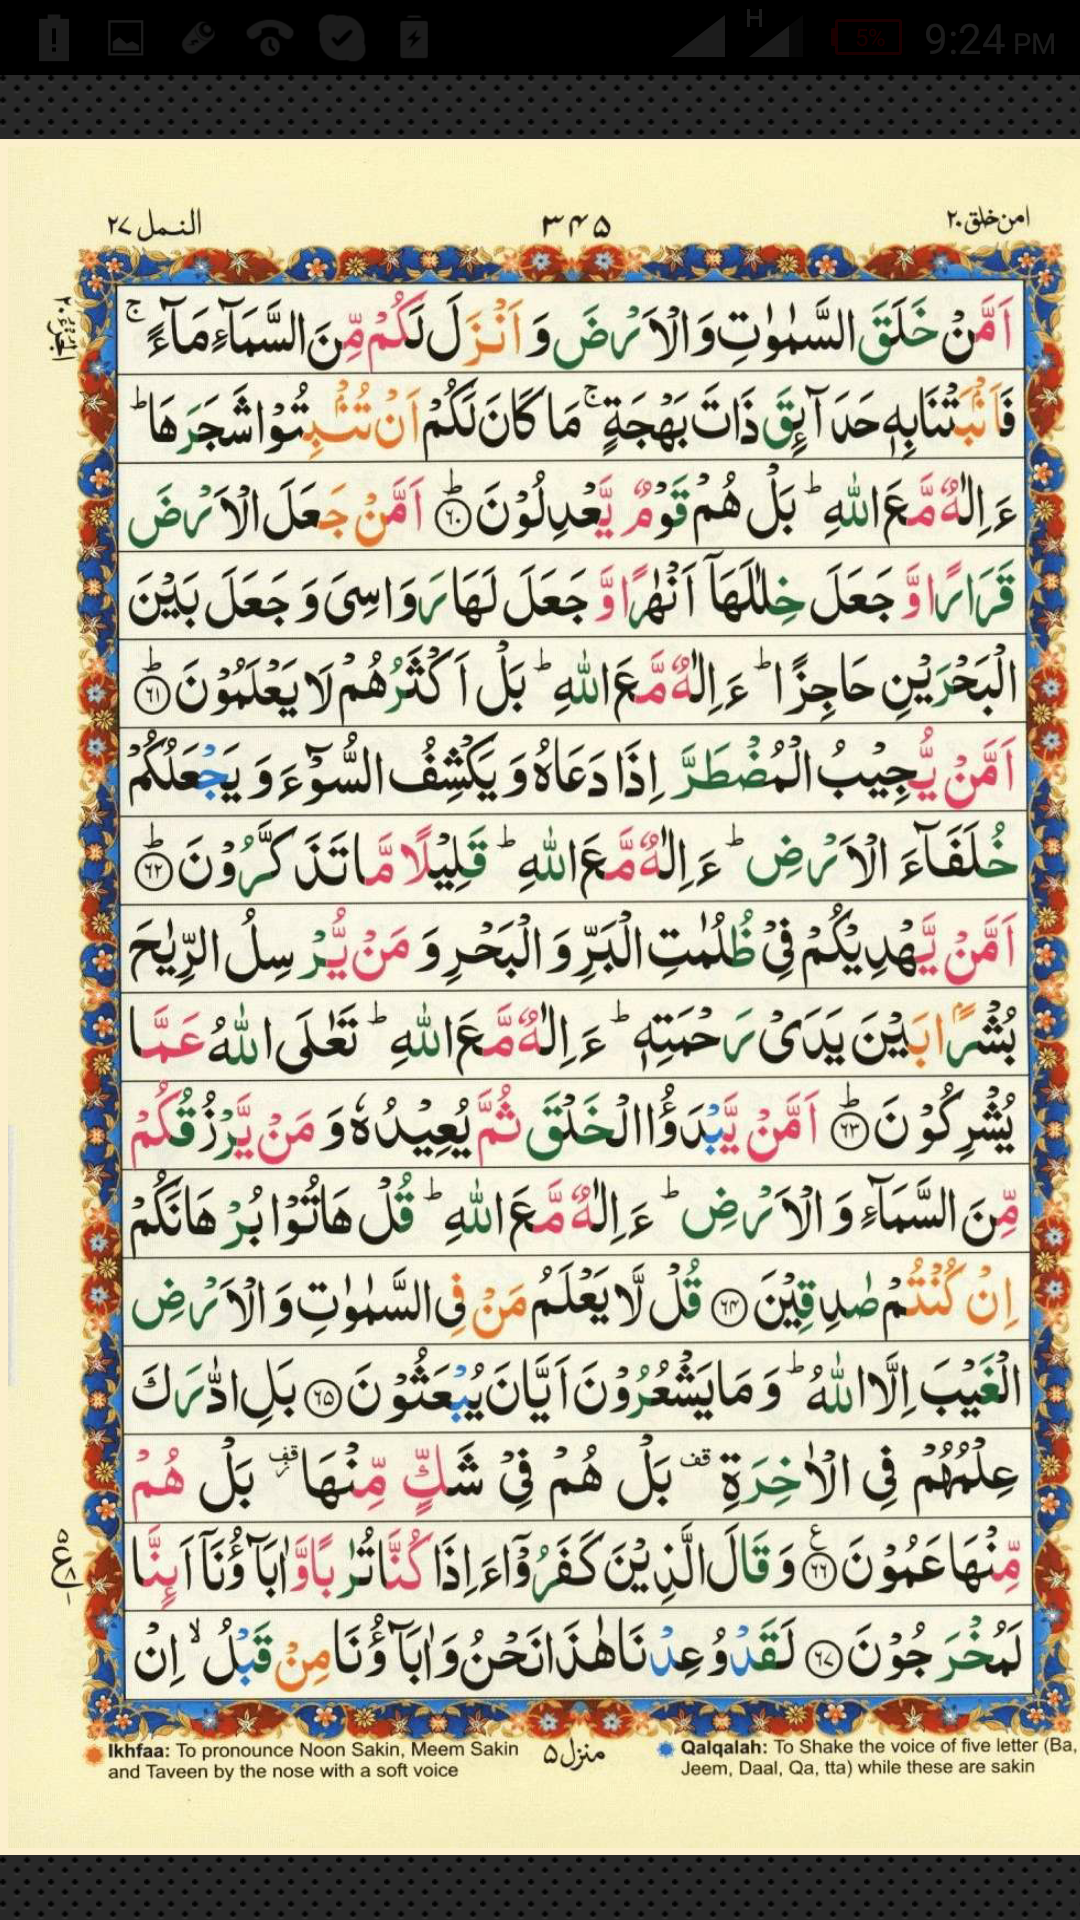 H 5% 9:24 PM
النمل ٢٧ ٣٤٥ امن خلق ٢٠
اَمَّنْ خَلَقَ السَّمٰوٰتِ وَ الْاَرْضَ وَ اَنْزَلَ لَكُمْ مِّنَ السَّمَآءِ مَآءً ۚ
فَاَنْۢبَتْنَا بِهٖ حَدَآئِقَ ذَاتَ بَهْجَةٍ ۚ مَا كَانَ لَكُمْ اَنْ تُنْۢبِتُوْا شَجَرَهَا ؕ
ءَاِلٰهٌ مَّعَ اللّٰهِ ؕ بَلْ هُمْ قَوْمٌ يَّعْدِلُوْنَ ؕ۶۰ اَمَّنْ جَعَلَ الْاَرْضَ
قَرَارًا وَّ جَعَلَ خِلٰلَهَاۤ اَنْهٰرًا وَّ جَعَلَ لَهَا رَوَاسِىَ وَ جَعَلَ بَيْنَ
الْبَحْرَيْنِ حَاجِزًا ؕ ءَاِلٰهٌ مَّعَ اللّٰهِ ؕ بَلْ اَكْثَرُهُمْ لَا يَعْلَمُوْنَ ؕ۶۱
اَمَّنْ يُّجِيْبُ الْمُضْطَرَّ اِذَا دَعَاهُ وَ يَكْشِفُ السُّوْٓءَ وَ يَجْعَلُكُمْ
خُلَفَآءَ الْاَرْضِ ؕ ءَاِلٰهٌ مَّعَ اللّٰهِ ؕ قَلِيْلًا مَّا تَذَكَّرُوْنَ ؕ۶۲
اَمَّنْ يَّهْدِيْكُمْ فِىْ ظُلُمٰتِ الْبَرِّ وَ الْبَحْرِ وَ مَنْ يُّرْسِلُ الرِّيٰحَ
بُشْرًۢا بَيْنَ يَدَىْ رَحْمَتِهٖ ؕ ءَاِلٰهٌ مَّعَ اللّٰهِ ؕ تَعٰلَى اللّٰهُ عَمَّا
يُشْرِكُوْنَ ؕ۶۳ اَمَّنْ يَّبْدَؤُا الْخَلْقَ ثُمَّ يُعِيْدُهٗ وَ مَنْ يَّرْزُقُكُمْ
مِّنَ السَّمَآءِ وَ الْاَرْضِ ؕ ءَاِلٰهٌ مَّعَ اللّٰهِ ؕ قُلْ هَاتُوْا بُرْهَانَكُمْ
اِنْ كُنْتُمْ صٰدِقِيْنَ ۶۴ قُلْ لَّا يَعْلَمُ مَنْ فِى السَّمٰوٰتِ وَ الْاَرْضِ
الْغَيْبَ اِلَّا اللّٰهُ ؕ وَ مَا يَشْعُرُوْنَ اَيَّانَ يُبْعَثُوْنَ ۶۵ بَلِ ادّٰرَكَ
عِلْمُهُمْ فِى الْاٰخِرَةِ قف بَلْ هُمْ فِىْ شَكٍّ مِّنْهَا قف بَلْ هُمْ
مِّنْهَا عَمُوْنَ ۶۶ع وَ قَالَ الَّذِيْنَ كَفَرُوْٓا ءَاِذَا كُنَّا تُرٰبًا وَّ اٰبَآؤُنَاۤ اَئِنَّا
لَمُخْرَجُوْنَ ۶۷ لَقَدْ وُعِدْنَا هٰذَا نَحْنُ وَ اٰبَآؤُنَا مِنْ قَبْلُ ۙ اِنْ
Ikhfaa: To pronounce Noon Sakin, Meem Sakin
and Taveen by the nose with a soft voice
منزل ۵
Qalqalah: To Shake the voice of five letter (Ba,
Jeem, Daal, Qa, tta) while these are sakin